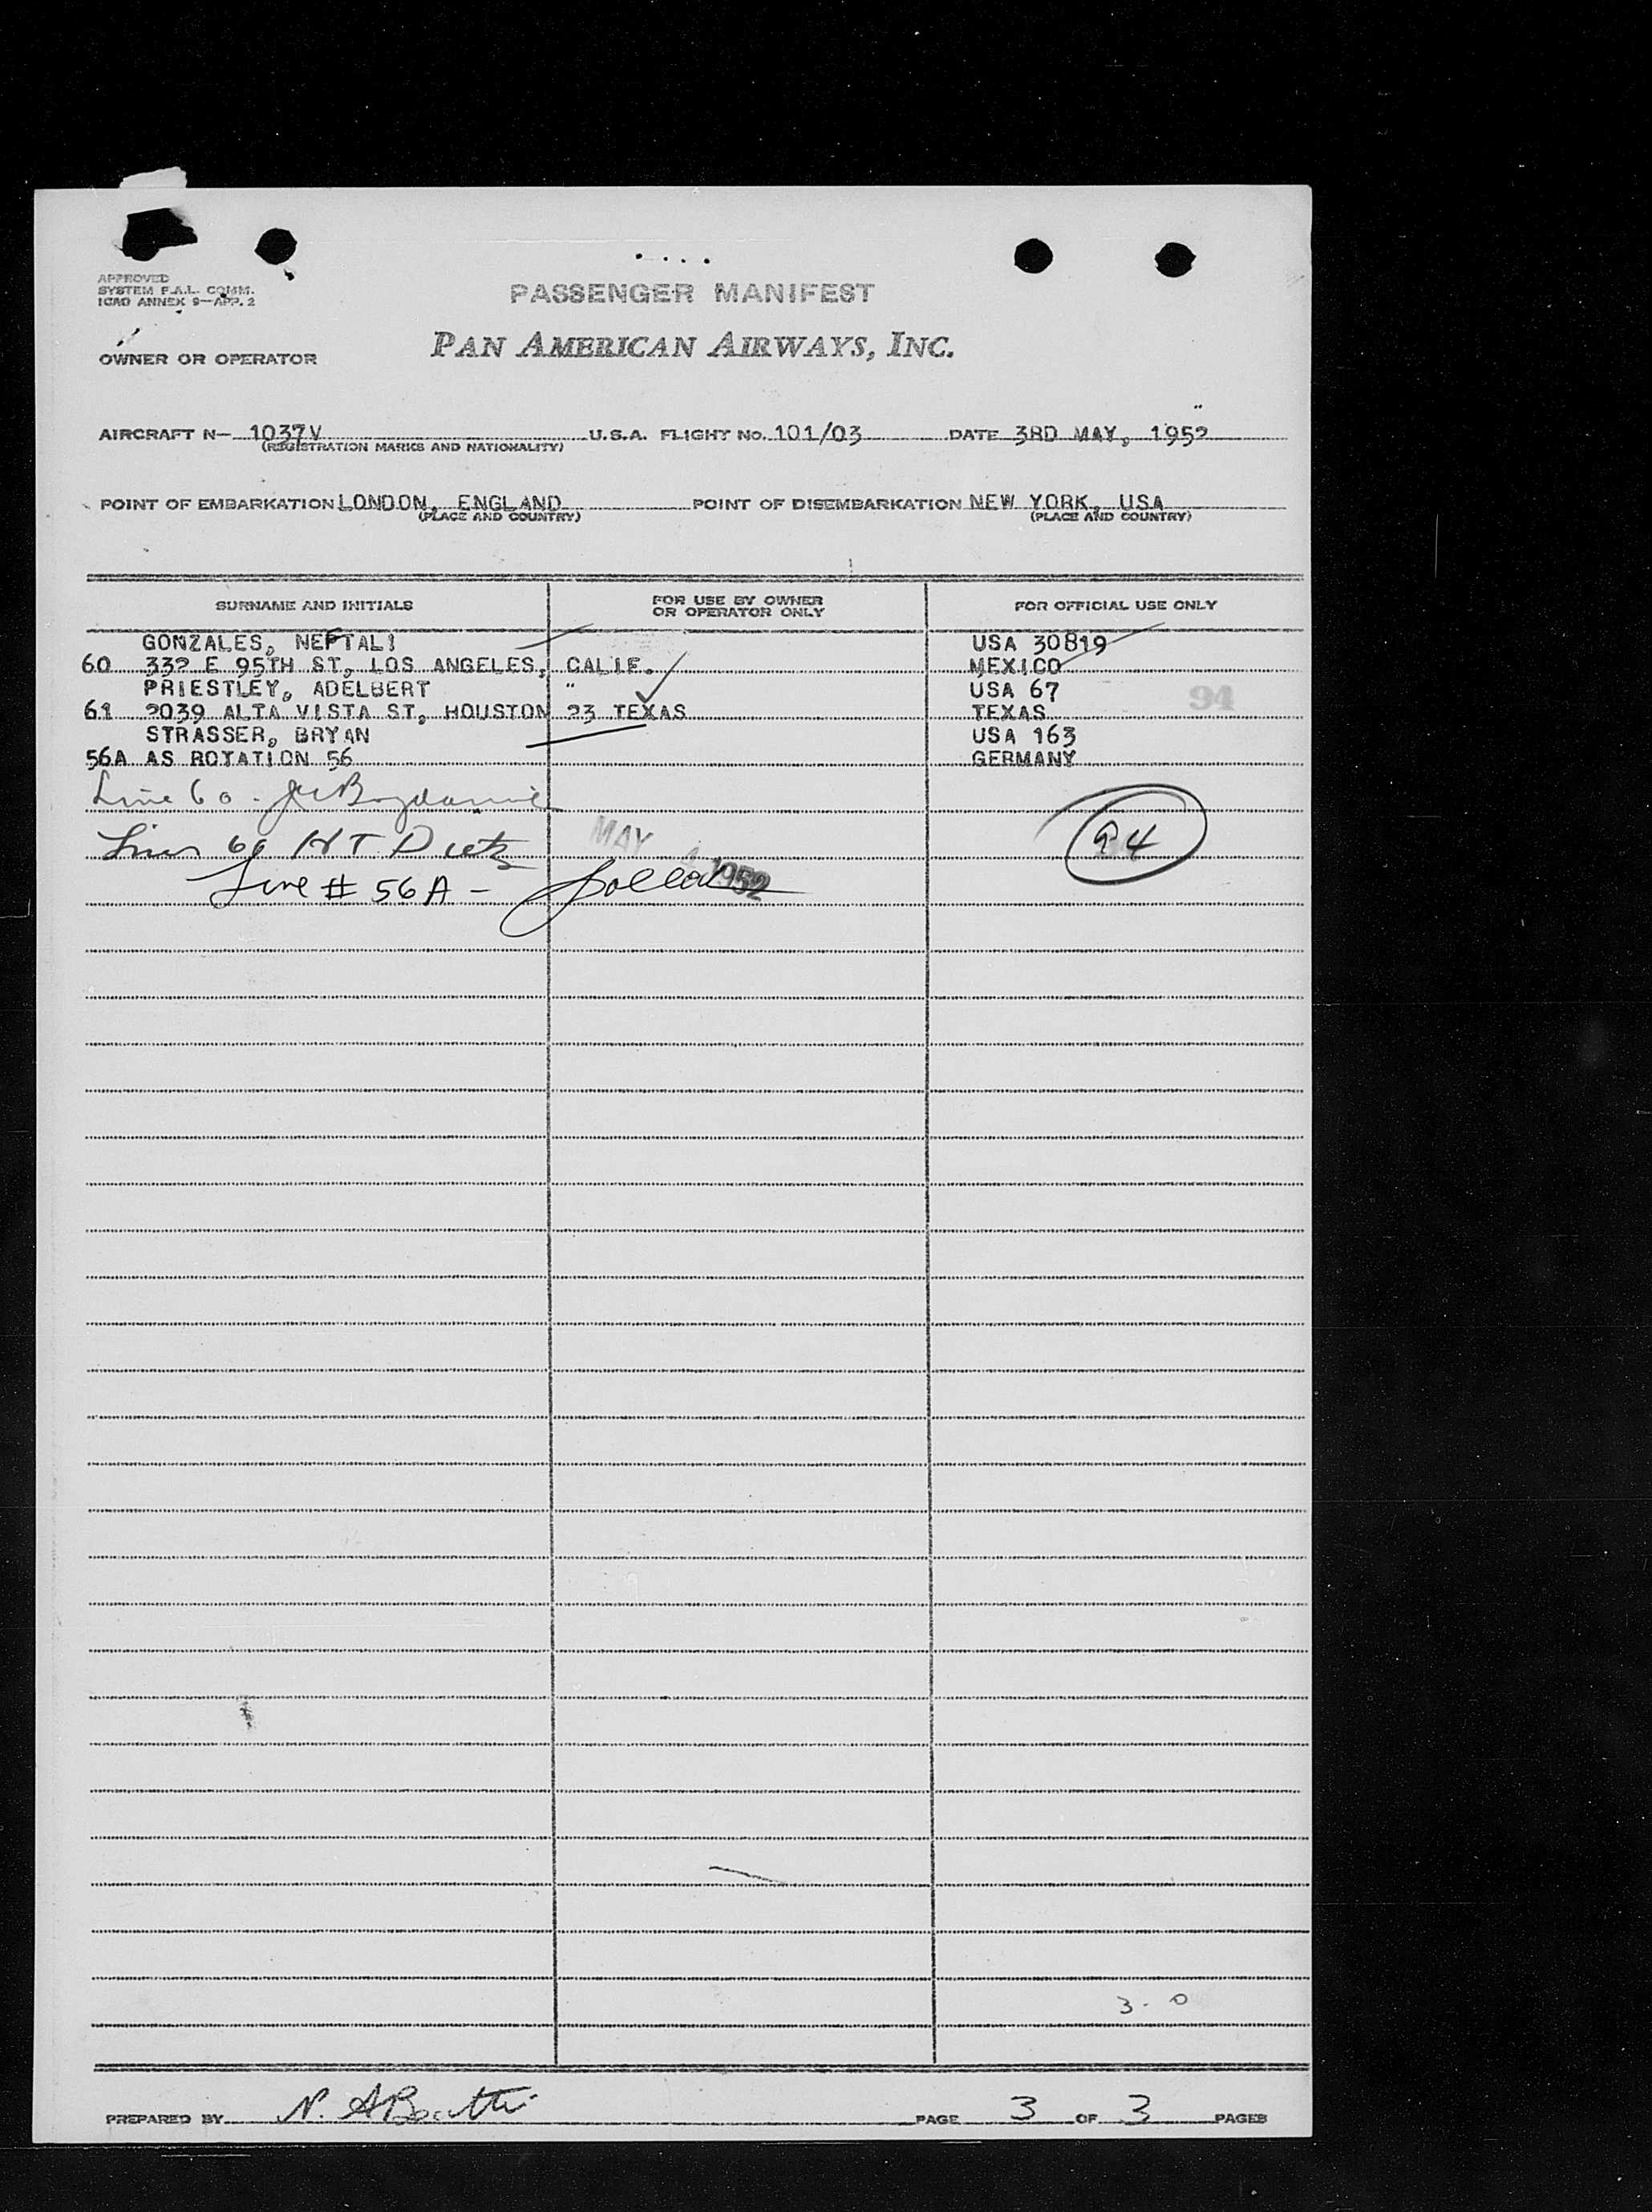 APPROVED
SYSTEM F.A.L. COMM.
ICAO ANNEX 9—APP. 2
PASSENGER MANIFEST
OWNER OR OPERATOR
PAN AMERICAN AIRWAYS, INC.
AIRCRAFT N— 1037V U.S.A. FLIGHT No. 101/03 DATE 3RD MAY, 1952
(REGISTRATION MARKS AND NATIONALITY)
POINT OF EMBARKATION LONDON, ENGLAND POINT OF DISEMBARKATION NEW YORK, USA
(PLACE AND COUNTRY) (PLACE AND COUNTRY)
SURNAME AND INITIALS FOR USE BY OWNER OR OPERATOR ONLY FOR OFFICIAL USE ONLY
GONZALES, NEFTALI USA 30819
60 332 E 95TH ST, LOS ANGELES, CALIF. MEXICO
PRIESTLEY, ADELBERT " USA 67
94
61 2039 ALTA VISTA ST, HOUSTON 23 TEXAS TEXAS
STRASSER, BRYAN USA 163
56A AS ROTATION 56 GERMANY
Line 60 -
MAY 4 1952
Line 61 HT Dietz 94
Line # 56A -
3 - 0
PREPARED BY N. A PAGE 3 OF 3 PAGES